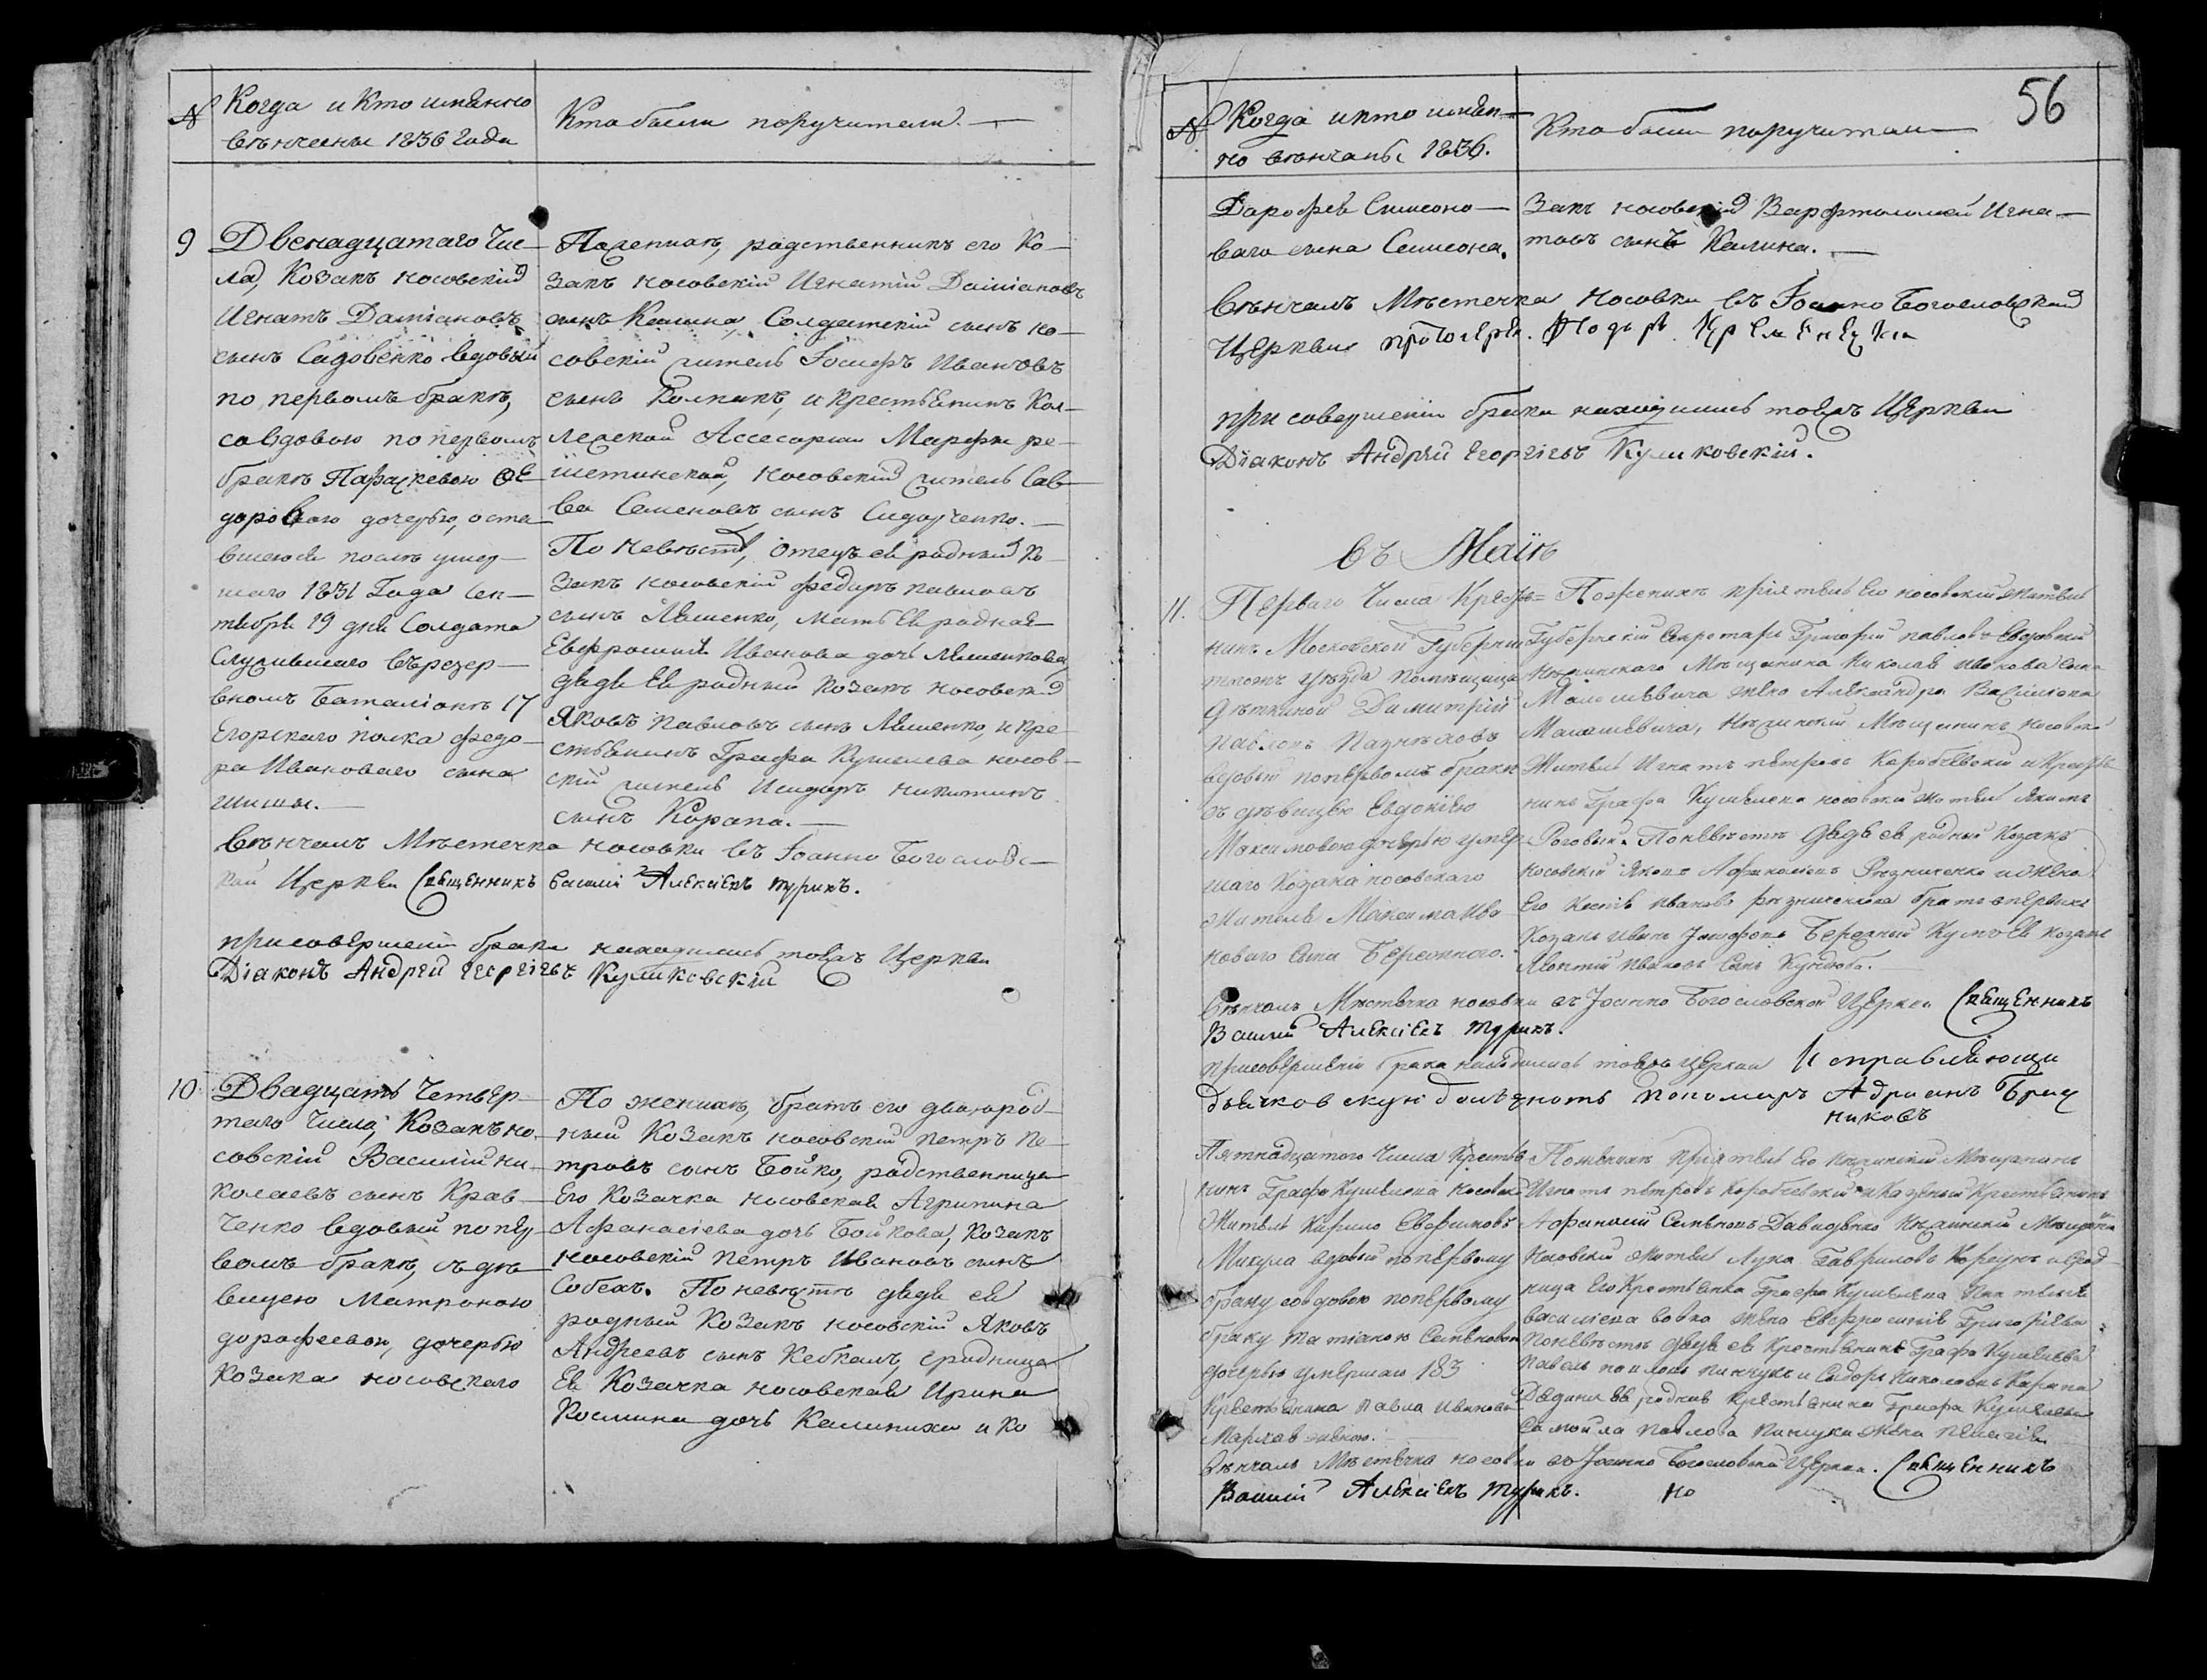 №
Когда и Кто имянно
вѣнчены 1836 года
Кто были поручители.
9
Двенадцатаго Чис-
ла, Козакъ носовскій
Игнатъ Даміановъ
сынъ Садовенко вдовый
по первомъ бракѣ,
со вдовою по первомъ
бракѣ Параскевою Ѳе
доровою дочерью, оста
вшеюся послѣ умер-
шаго 1831 Года Сен-
тября 19 дня Солдата
Служившаго въ резер-
вномъ баталіонѣ 17
Егорскаго полка Федо-
ра Ивановаго сына
По женихѣ, родственникъ его Ко-
закъ носовскій Игнатій Даміановъ
сынъ Калина, Солдатскій сынъ но-
совскій житель Іосифъ Ивановъ
сынъ Колпакъ, и крестьянинъ Кол-
лежской Ассесорши Марфы Ре-
шетинской, носовскій житель Сав
ва Семеновъ сынъ Сидорченко.
По невѣстѣ, Отецъ ея родный Ко
закъ носовскій Федоръ Павловъ
сынъ Ляшенко, мать Ея родная
Евфросинія Иванова дочь Ляшенкова
дядя Ея родный козакъ носовскій
Яковъ Павловъ сынъ Ляшенко, и кре
стьянинъ Графа Кушелева носов-
скій житель Исидоръ Никитинъ
сынъ Корапа.
Вѣнчалъ Мѣстечка Носовки въ Іоанно Богословс-
кой Церкви Священникъ Василій Алексіевъ Турикъ.
при совершеніи брака находились тояжъ Церкви
Діаконъ Андрей Георгіевъ Куликовскій
10
Двадцать Четвер-
таго Числа, Козакъ но-
совскій Василій Ни-
колаевъ сынъ Крав-
ченко вдовый по пер
вомъ бракѣ, съ дѣ
вицею Матроною
дорофеевою, дочерью
Козака носовскаго
По женихѣ, братъ его двоюрод-
ный Козакъ носовскій Петръ Пе-
тровъ сынъ Бойко, родственница
Его Козачка носовская Агрипина
Афанасіева дочь Бойкова, Козакъ
носовскій Петръ Ивановъ сынъ
Собеъ. По невѣстѣ дядя ея
родный Козакъ носовскій Яковъ
Андреевъ сынъ Кебкалъ, сродница
Ея Козачка носовская Ирина
Космина дочь Калиниха и Ко
56
№
Когда и кто имян-
но вѣнчаны 1836.
Кто были поручители
Дорофея Симеоно-
ваго сына Семиона.
Закъ носовскій Варфоломей Игна-
товъ сынъ Калина.
Вѣнчалъ Мѣстечка Носовки въ Іоанно Богословской
Церкви протоіерей Ѳ͏еодоръ Кременецкій
при совершеніи брака находились тояжъ Церкви
Діаконъ Андрей Георгіевъ Куликовскій.
въ Маіѣ
11.
Перваго Числа Крестья=
нинъ Московской Губерніи
тогожъ уѣзда помѣщицы
Димитрій
Павловъ
вдовый поперьвомъ бракѣ
съ дѣвицею Евдокіею
Максимовою дочерью умер
шаго Козака носовскаго
жителя Максима Ива
новаго сына Бережного.
Поженихѣ пріятель Его носовскій житель
Губернскій Секретарь Григорій Павловъ
Нѣжинскаго Мѣщанина Николая сына
жена Александра Василиева
Нѣжинскій Мѣщанинъ Носовскій
Житель Игнатъ Петровъ Коробчевскій и Крестья
нинъ Графа Кушелева носовскій житель Якимъ
Роговый. Поневѣстѣ Дядя ея родный Козакъ
Носовскій Яковъ Резниченко и жена
Его Иванова Резниченкова братъ
Козакъ Иванъ Бережный Кумъ Ея козакъ
Леонтій Ивановъ Сынъ Кундюба.
Вѣнчалъ Мѣстечка носовки въ Іоанно Богословской Церкви Священникъ
Василій Алексіевъ Турикъ.
при совершеніи брака находились тояжъ церкви Исправляющи
дьячковскую должность Пономаръ Адріанъ Бриж
никовъ
Пятнадцатого Числа Крестья
нинъ Графа Кушелева Носовскій
Житель Кирило Евфимовъ
Микула вдовый поперьвому
браку со вдовою поперьвому
браку Татіаною Семеновою
дочерью умершаго 183
Крестьянина Павла Иванова
Поженихѣ Пріятель Его Нѣжинскій Мѣщанинъ
Игнатъ Петровъ Коробчевскій и Казеный Крестьянинъ
Афанасій Семеновъ Давиденко Нѣжинскій Мѣщанинъ
Носовскій житель Лука Гавриловъ и срод
ница Его Крестьянка Графа Кушелева
Василиева Вовка жена Евфросинія Григоріева
Поневѣстѣ Дядя ея Крестьянинъ Графа Кушелева
Павелъ Пинчукъ и Сидоръ Николаевъ Карапа
Дядина ея родная Крестьянина Графа Кушелева
Самойла Павлова Пинчука жена Пелагія
Вѣнчалъ Мѣстечка носовки въ Іоанно Богословской Церкви. Священникъ
Василій Алексіевъ Турикъ. но